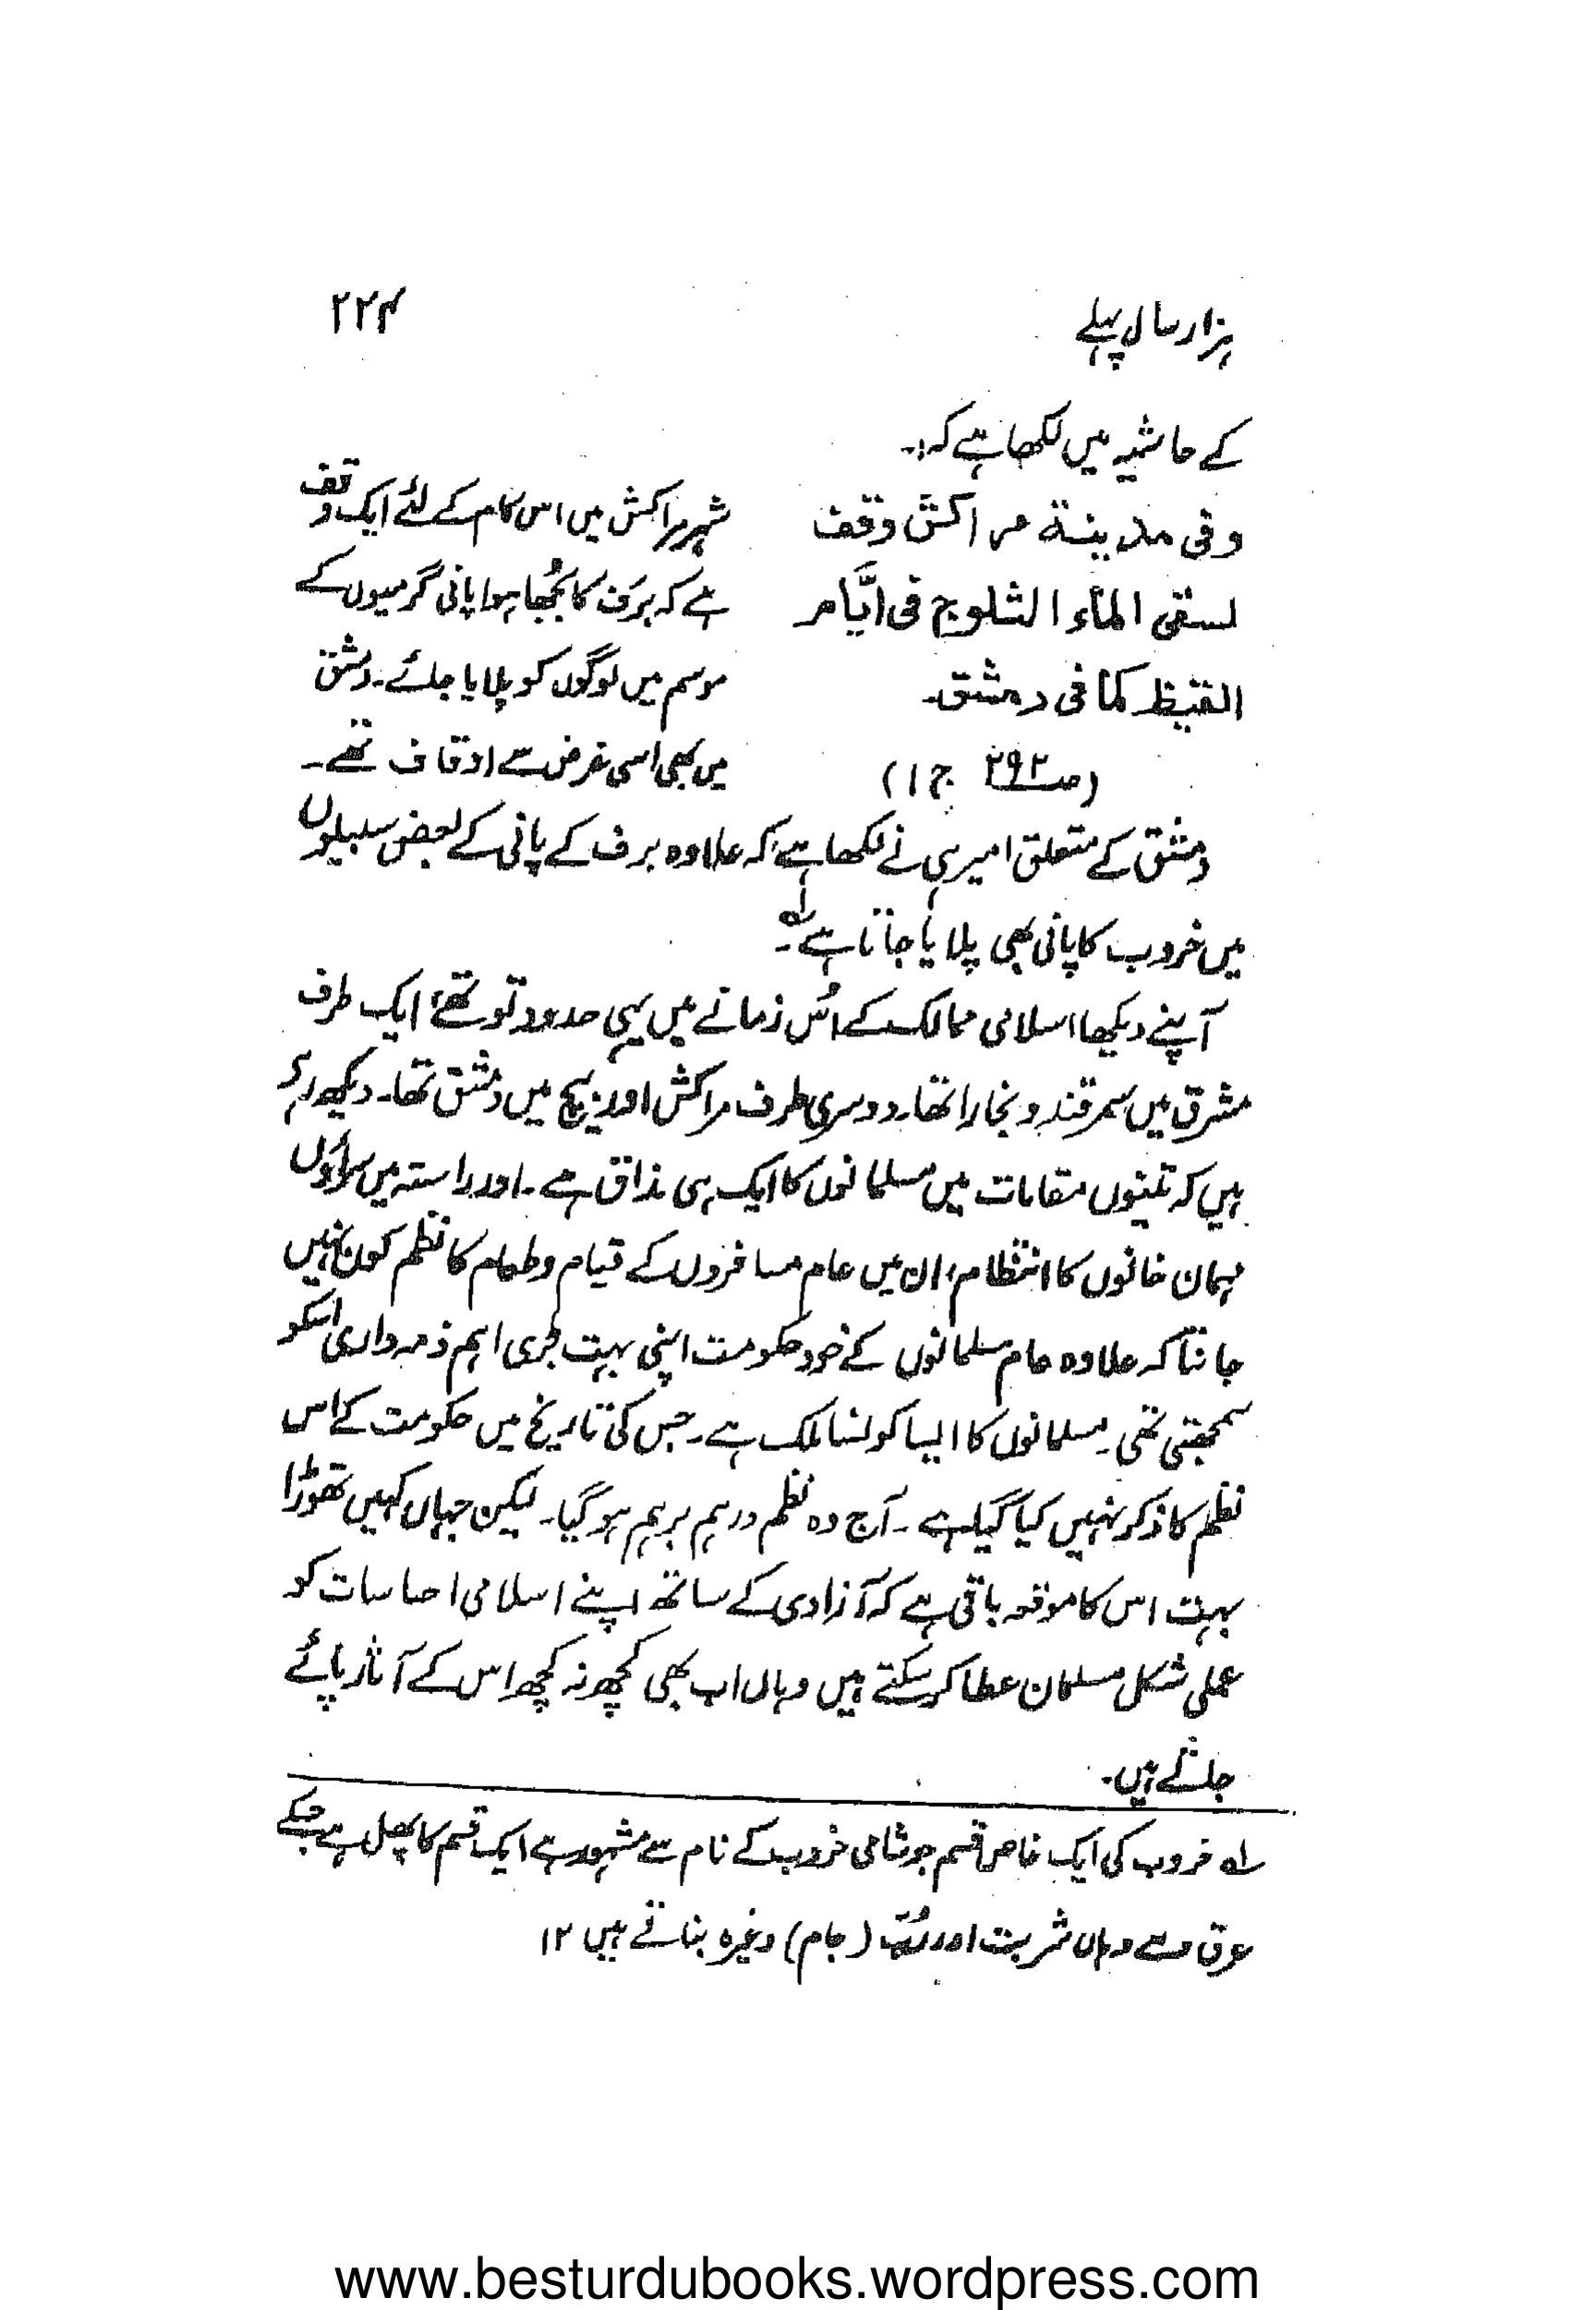 ہزار سال پہلے
۲۲۴
کے حاشیہ میں لکھا ہے کہ:۔
وفی مدینة مراکش وقف
لسقی الماء الثلوج فی ایَّام
القیظ کما فی دمشق۔
(صـ۲۹۲ ج ۱)
شہر مراکش میں اس کام کے لئے ایک وقف
ہے کہ برَف کا بُجھا ہوا پانی گرمیوں کے
موسم میں لوگوں کو پلایا جائے۔ دمشق
میں بھی اسی غرض سے اوقاف تھے۔
دمشق کے متعلق امیری نے لکھا ہے کہ علاوہ برف کے پانی کے بعض سبیلوں
میں خروب کا پانی بھی پلایا جاتا ہے ۱؎۔
آپنے دیکھا اسلامی ممالک کے اُس زمانے میں یہی حدود تو تھے، ایک طرف
مشرق میں سمرقند و بخارا تھا۔ دوسری طرف مراکش اور بیچ میں دمشق تھا۔ دیکھ رہے
ہیں کہ تینوں مقامات میں مسلمانوں کا ایک ہی مذاق ہے۔ اور راستہ میں سراؤں
مہمان خانوں کا انتظام، ان میں عام مسافروں کے قیام و طعام کا نظم کون نہیں
جانتا کہ علاوہ عام مسلمانوں کے خود حکومت اپنی بہت بڑی اہم ذمہ داری اسکو
سمجھتی تھی۔ مسلمانوں کا ایسا کونسا ملک ہے۔ جس کی تاریخ میں حکومت کے اس
نظم کا ذکر نہیں کیا گیا ہے۔ آج وہ نظم درہم برہم ہو گیا۔ لیکن جہاں کہیں تھوڑا
بہت اس کا موقعہ باقی ہے کہ آزادی کے ساتھ اپنے اسلامی احساسات کو
عملی شکل مسلمان عطا کر سکتے ہیں وہاں اب بھی کچھ نہ کچھ اس کے آثار پائے
جاتے ہیں۔
۱؎ خروب کی ایک خاص قسم جو شامی خروب کے نام سے مشہور ہے ایک قسم کا پھل ہے جسکے
عرق سے وہاں شربت اور رُبّ (جام) وغیرہ بناتے ہیں ۱۲
www.besturdubooks.wordpress.com